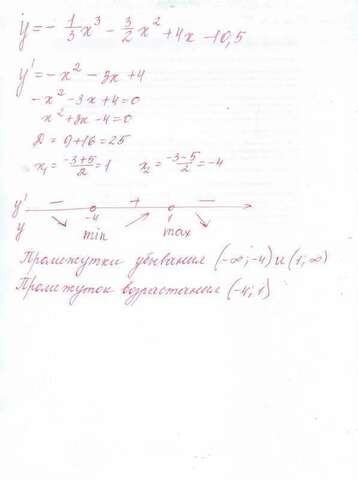 y = - 1/3 x³ - 3/2 x² + 4x - 10,5
y' = - x² - 3x + 4
- x² - 3x + 4 = 0
x² + 3x - 4 = 0
D = 9 + 16 = 25
x₁ = (-3+5)/2 = 1   x₂ = (-3-5)/2 = -4
y' − + −
-4 1
y min max
Промежутки убывания (-∞; -4) и (1; ∞)
Промежуток возрастания (-4; 1)